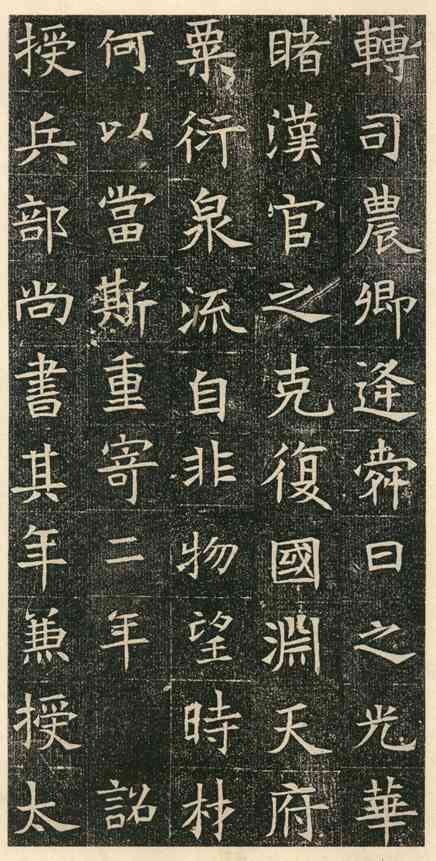 轉司農卿逢舜日之光華
睹漢官之克復國淵天府
粟衍泉流自非物望時材
何以當斯重寄二年　詔
授兵部尚書其年兼授太